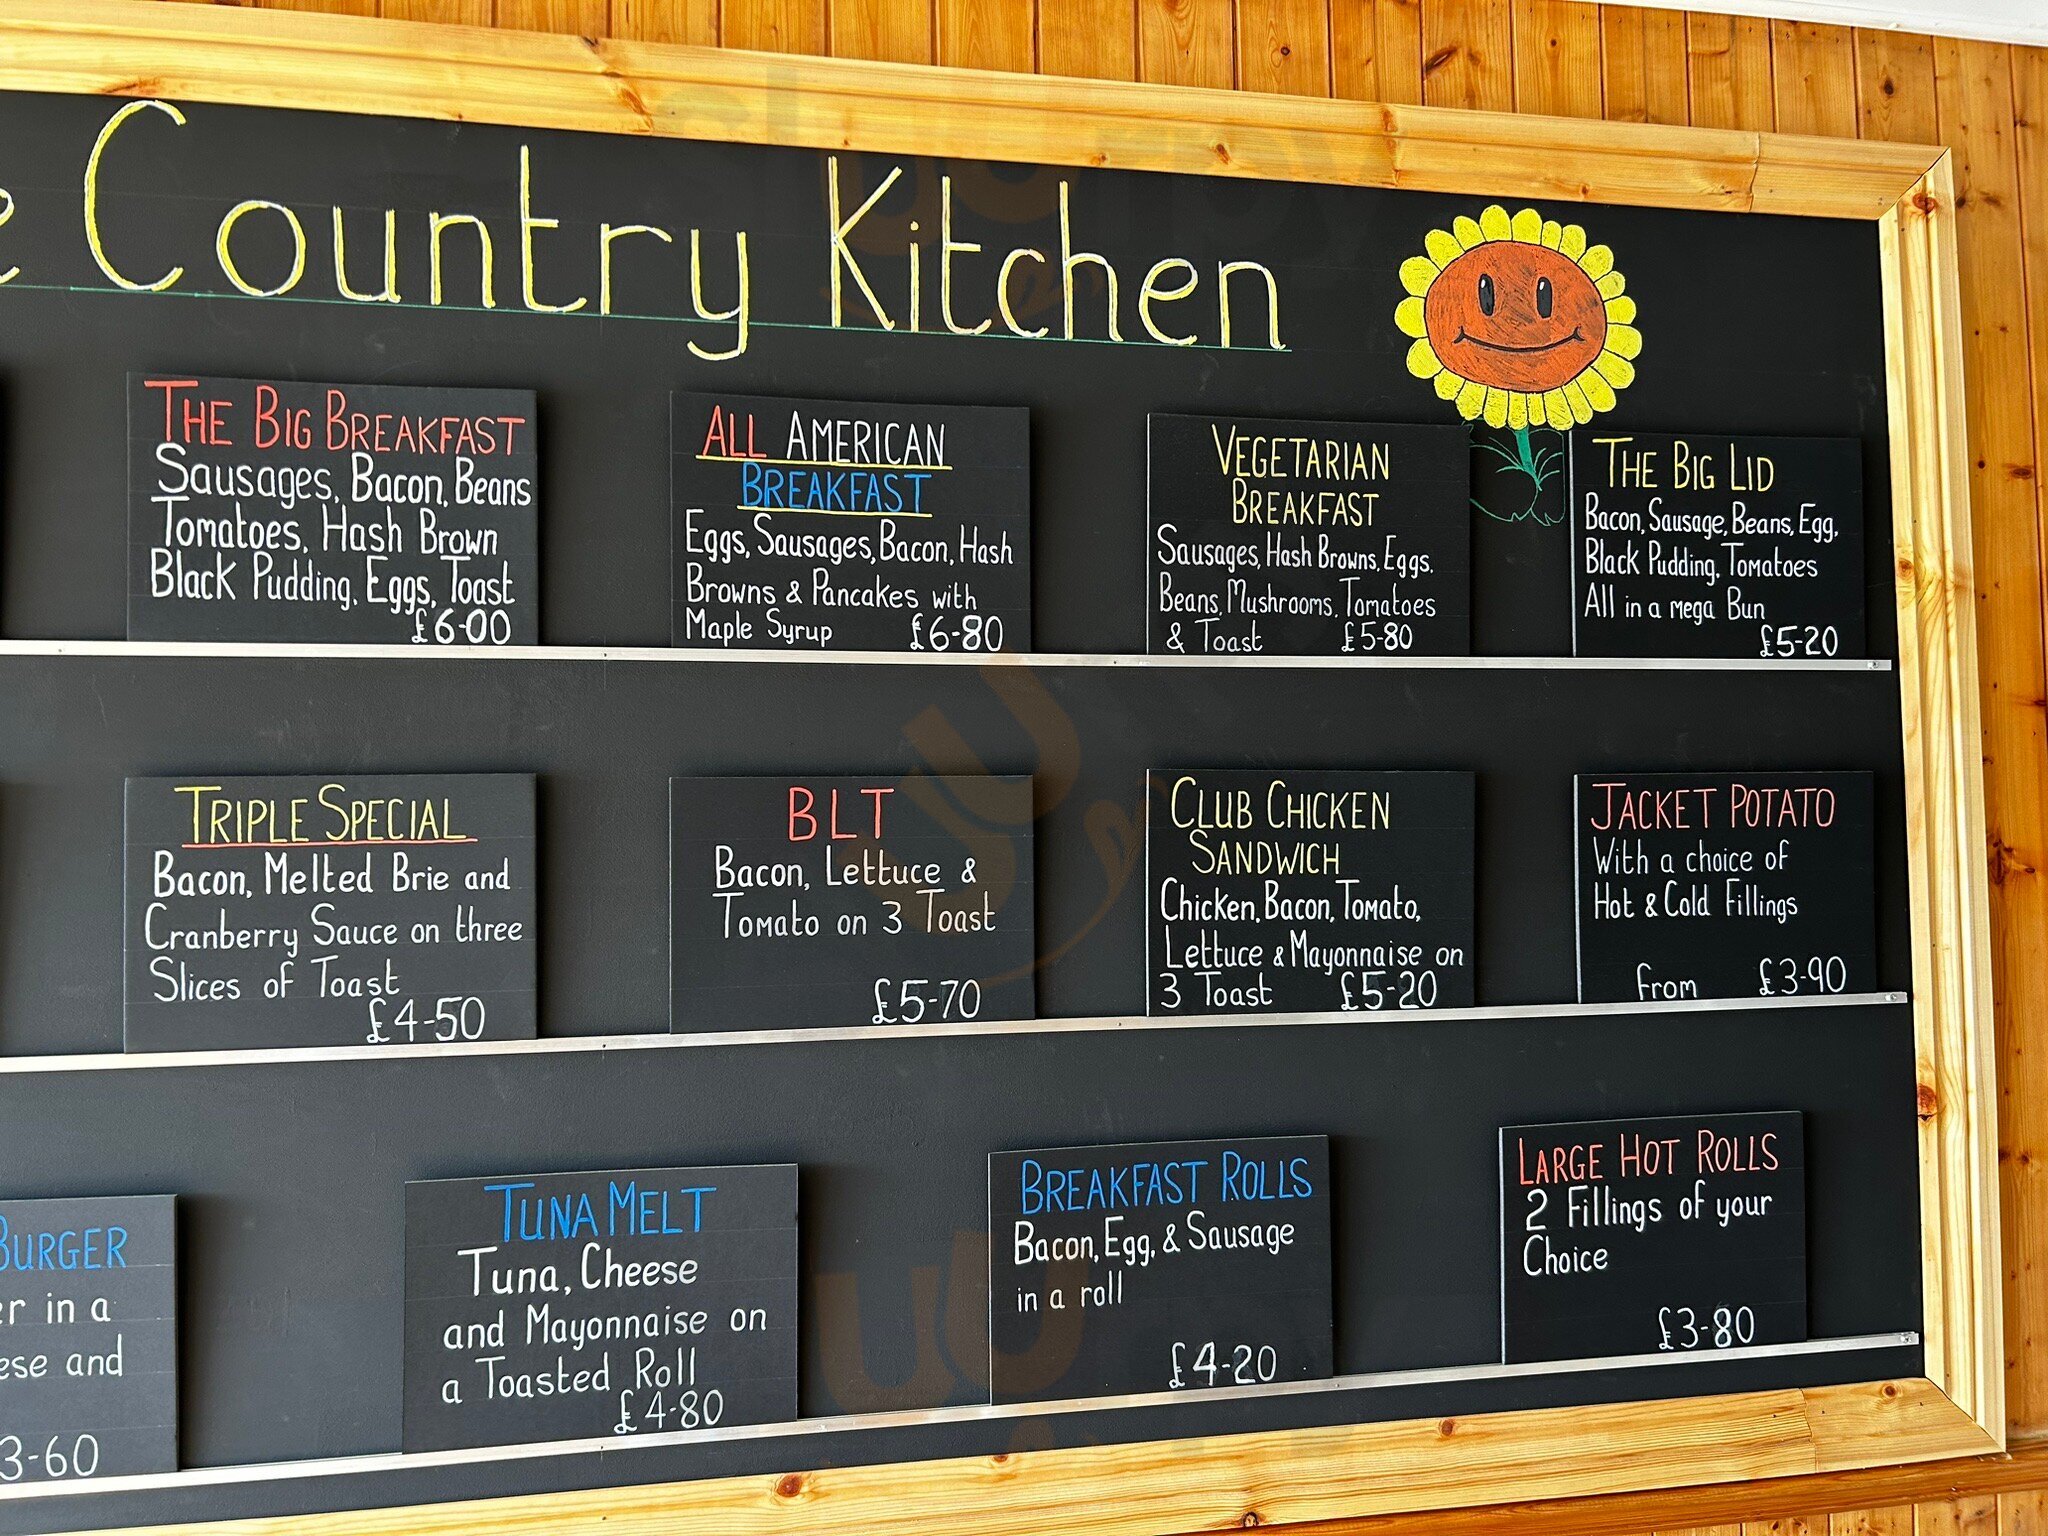 e Country Kitchen
THE BIG BREAKFAST
Sausages, Bacon, Beans
Tomatoes, Hash Brown
Black Pudding, Eggs, Toast
£6-00
ALL AMERICAN
BREAKFAST
Eggs, Sausages, Bacon, Hash
Browns & Pancakes with
Maple Syrup £6-80
VEGETARIAN
BREAKFAST
Sausages, Hash Browns, Eggs,
Beans, Mushrooms, Tomatoes
& Toast £5-80
THE BIG LID
Bacon, Sausage, Beans, Egg,
Black Pudding, Tomatoes
All in a mega Bun
£5-20
TRIPLE SPECIAL
Bacon, Melted Brie and
Cranberry Sauce on three
Slices of Toast
£4-50
BLT
Bacon, Lettuce &
Tomato on 3 Toast
£5-70
CLUB CHICKEN
SANDWICH
Chicken, Bacon, Tomato,
Lettuce & Mayonnaise on
3 Toast £5-20
JACKET POTATO
With a choice of
Hot & Cold Fillings
from £3-90
BURGER
er in a
ese and
3-60
TUNA MELT
Tuna, Cheese
and Mayonnaise on
a Toasted Roll
£4-80
BREAKFAST ROLLS
Bacon, Egg, & Sausage
in a roll
£4-20
LARGE HOT ROLLS
2 Fillings of your
Choice
£3-80